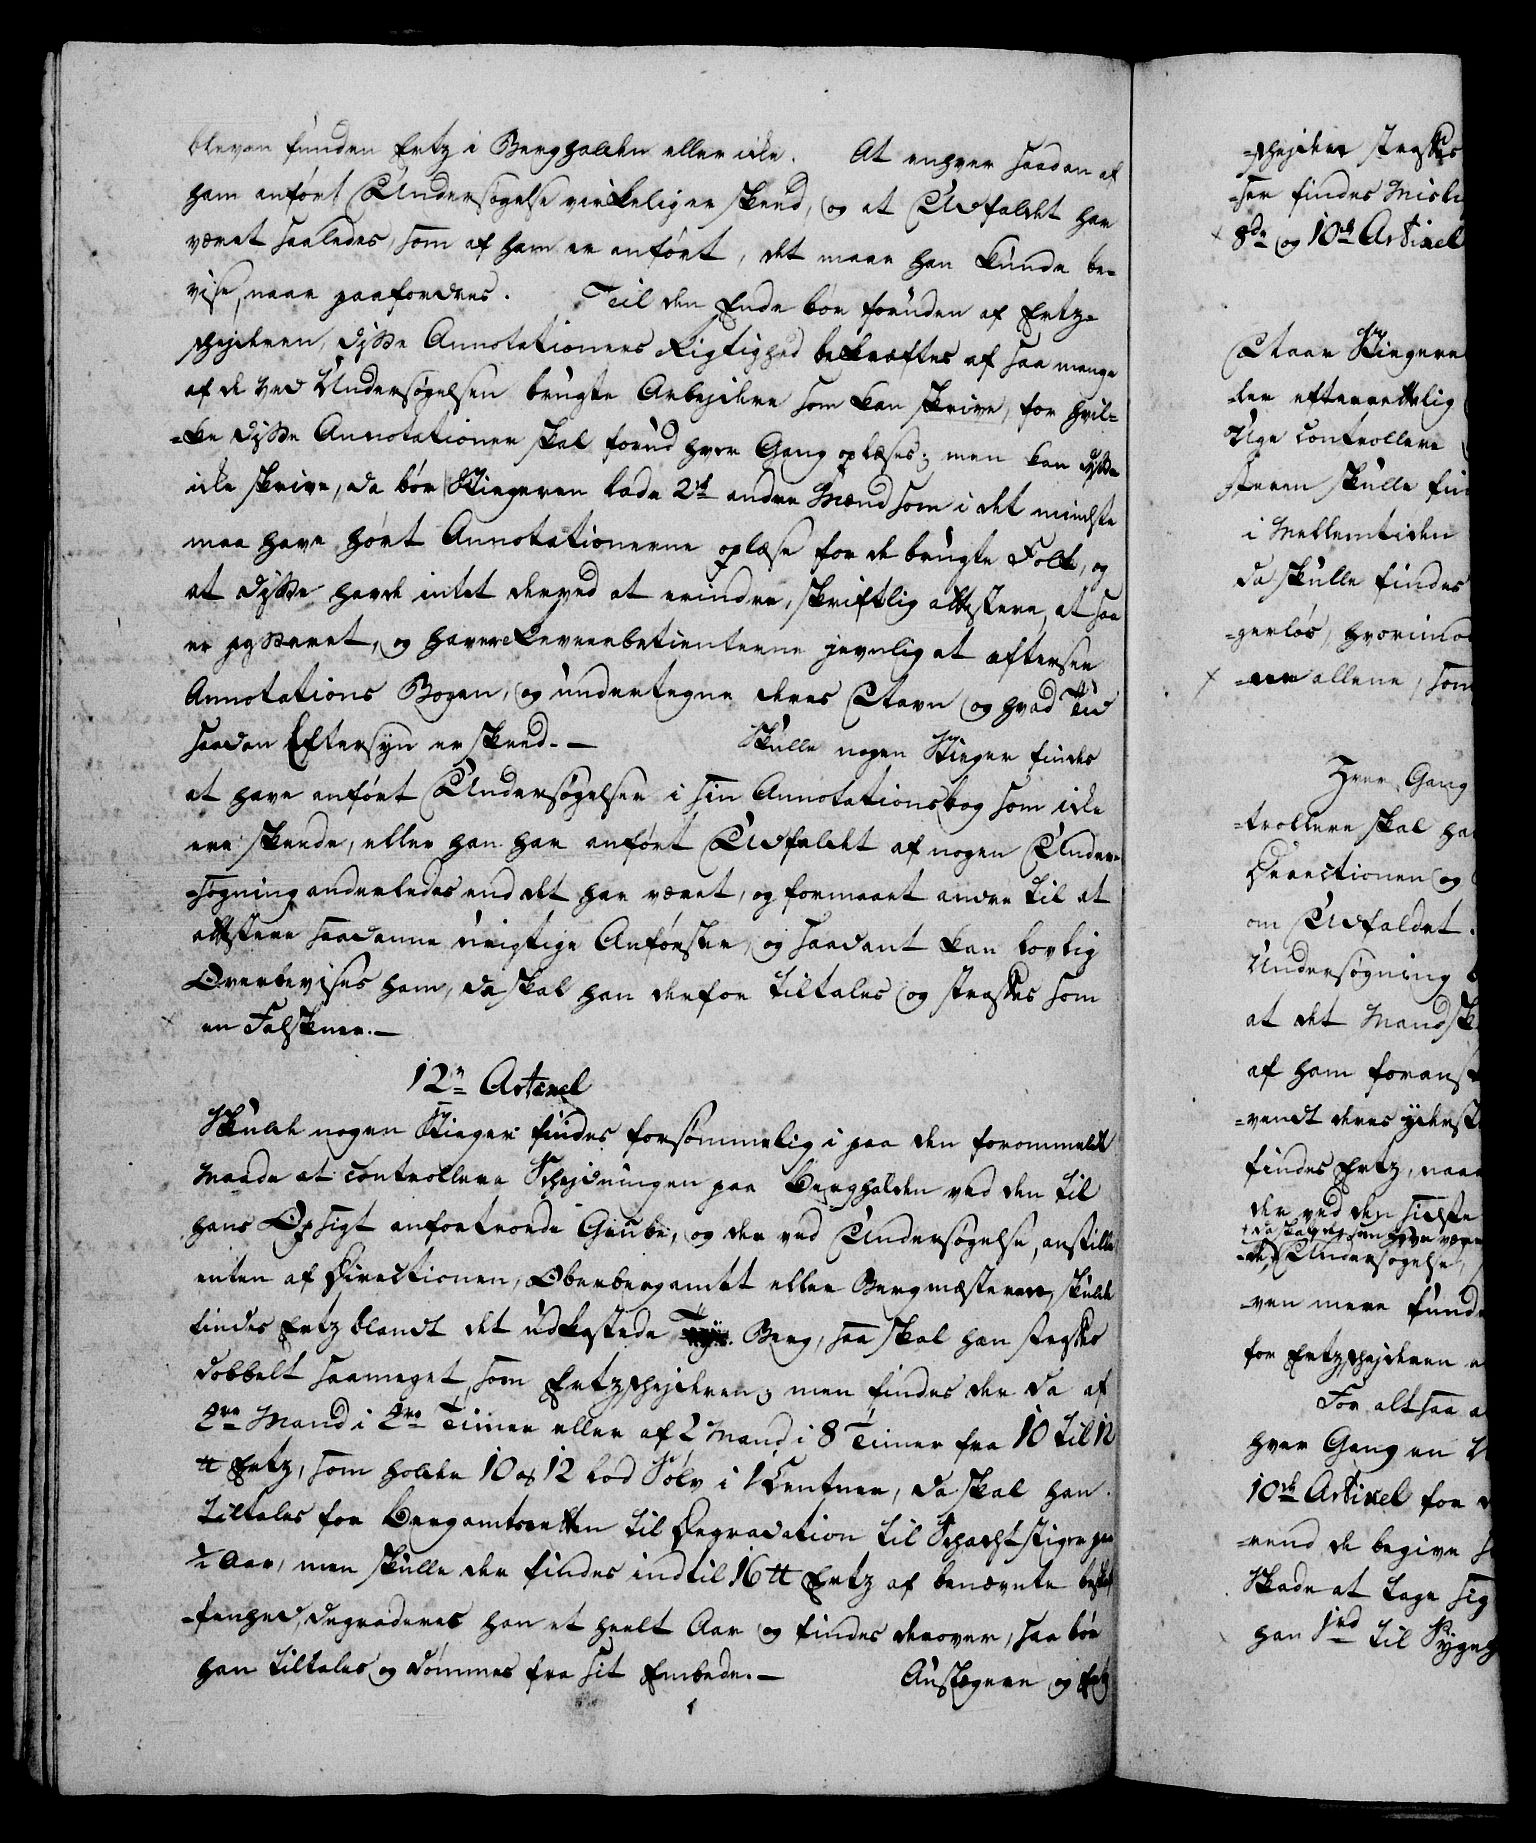 bleven funden Ertz i Berghalden eller ikke. At enhver saadan af
ham anført Undersøgelse virkelig er skeed, og at Udfaldet har
været saaledes, som af ham er anført, det maae han kunde be-
vise, naar paafordres. Til den Ende bør foruden af Ertz-
schejderen, disse Annotationers Rigtighed bekræftes af saa mange
af de ved Undersøgelsen brugte Arbejdere som kan skrive, for hvil-
-ke disse Annotationer skal forud hver Gang oplæses; men kan disse
ikke skrive, da bør Stiegeren lade 2de andre Mænd som i det mindste
maa have hørt Annotationerne oplæse for de brugte Folk, og
at disse havde intet derved at erindre, skriftlig attestere, at saa
er passeret, og haver Leverbetienterne jevnlig at eftersee
Annotations Bogen, og undertegne deres Navn og hvad Tid
saadan Eftersyn er skeed.— Skulle nogen Stieger findes
at have anført Undersøgelser i sin Annotationsbog som ikke
ere skeede, eller han har anført Udfaldet af nogen Under-
-søgning anderledes end det har været, og formaaet andre til at
attestere saadanne urigtige Anførster, og saadant kan lovlig
Overbevises ham, da skal han derfor tiltales og straffes som
en Falskner.—
12te Artikel
Skulde nogen Stieger findes forsømmelig i paa den forommeldte
Maade at controllere Schejdningen paa Berghalden ved den til
hans Opsigt anfortroede Grube, og der ved Undersøgelse, anstillet
enten af Directionen, Oberbergamtet eller Bergmæsteren, skulde
findes Ertz blandt det udkastede Berg, saa skal han straffes
dobbelt saameget, som Ertzschejderen; men findes der da af
4re Mand i 4re Timer eller af 2 Mand i 8 Timer fra 10 til 12
℔ Ertz, som holder 10 a 12 Lod Sølv i 1 Centner, da skal han
tiltales for Bergamtsretten til Degradation til Schachtstiger paa
½ Aar, men skulle der findes indtil 16 ℔ Ertz af benævnte beskaf-
-fenhed, degraderes han et heelt Aar og findes derover, saa bør
han tiltales og dømmes fra sit Embede.— Anstegere og Ertz
-schejdere straffes
-ser findes
8de og 10de Artikel
Stiegere
-ler efterrettelig
Uge controllere
skulle
i Mellemtiden
da skulle findes
-gerløs, hvorimod
-ere allene, som
Hver Gang
-trollere skal
Directionen og
om Udfaldet.
Undersøgning
at det Mandsk
af ham foranst
-vendt deres yderst
findes Ertz, naar
der ved den sidste
da skal
Undersøgelse,
-ven mere funde
for Ertzschejderen
For altsaa a
hver Gang en
10de Artikel for
-rend de begive
Skade at tage sig
han til